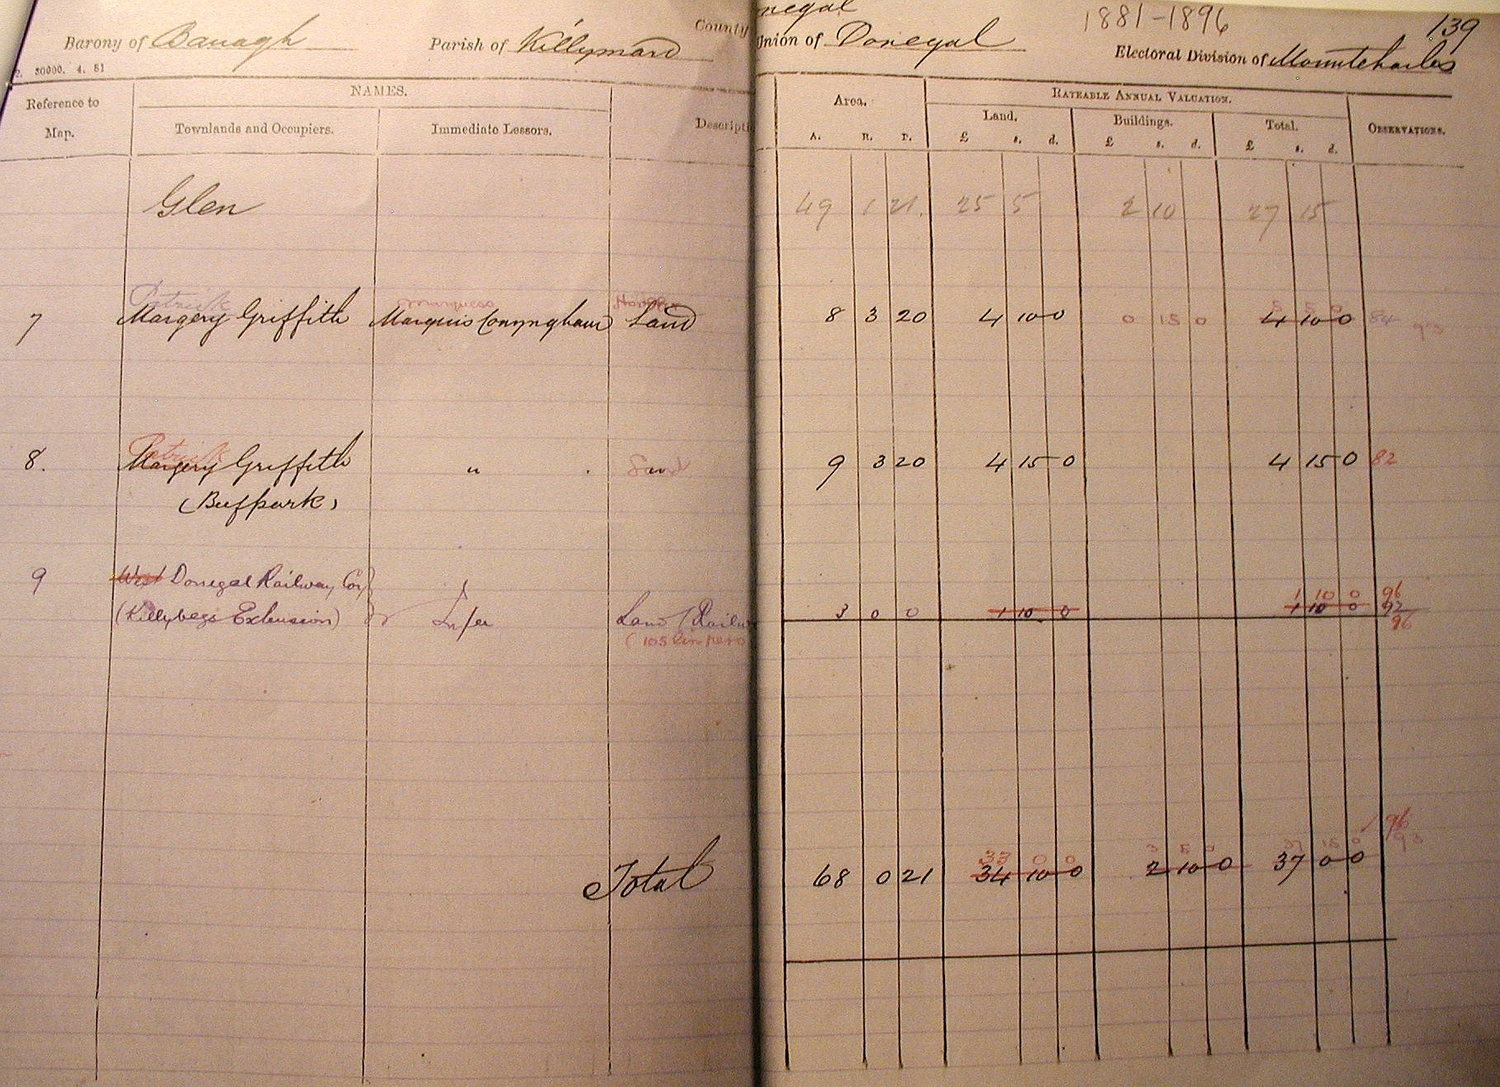 1881-1896
139
Barony of Banagh Parish of Killymard County Donegal Union of Donegal Electoral Division of Mountcharles
30000. 4. 81
Reference to Map. NAMES. Area. RATEABLE ANNUAL VALUATION. OBSERVATIONS.
Townlands and Occupiers. Immediate Lessors. Descripti Land. Buildings. Total.
A. R. P. £ s. d. £ s. d. £ s. d.
Glen 49 1 21. 25 5 2 10 27 15
Patrick Marquess House 5 5 0
7 Margery Griffith Marquis Conyngham Land 8 3 20 4 10 0 0 15 0 4 10 0 84 93
Patrick
8. Margery Griffith " Land 9 3 20 4 15 0 4 15 0 82
(Bufpark)
9 West Donegal Railway Coy 1 10 0 96
(Killybegs Extension) In fee Land (Railw 3 0 0 1 10 0 1 10 0 92
(105 lin per 96
96
33 0 0 3 5 0 37 15 0 93
Total 68 0 21 34 10 0 2 10 0 37 0 0